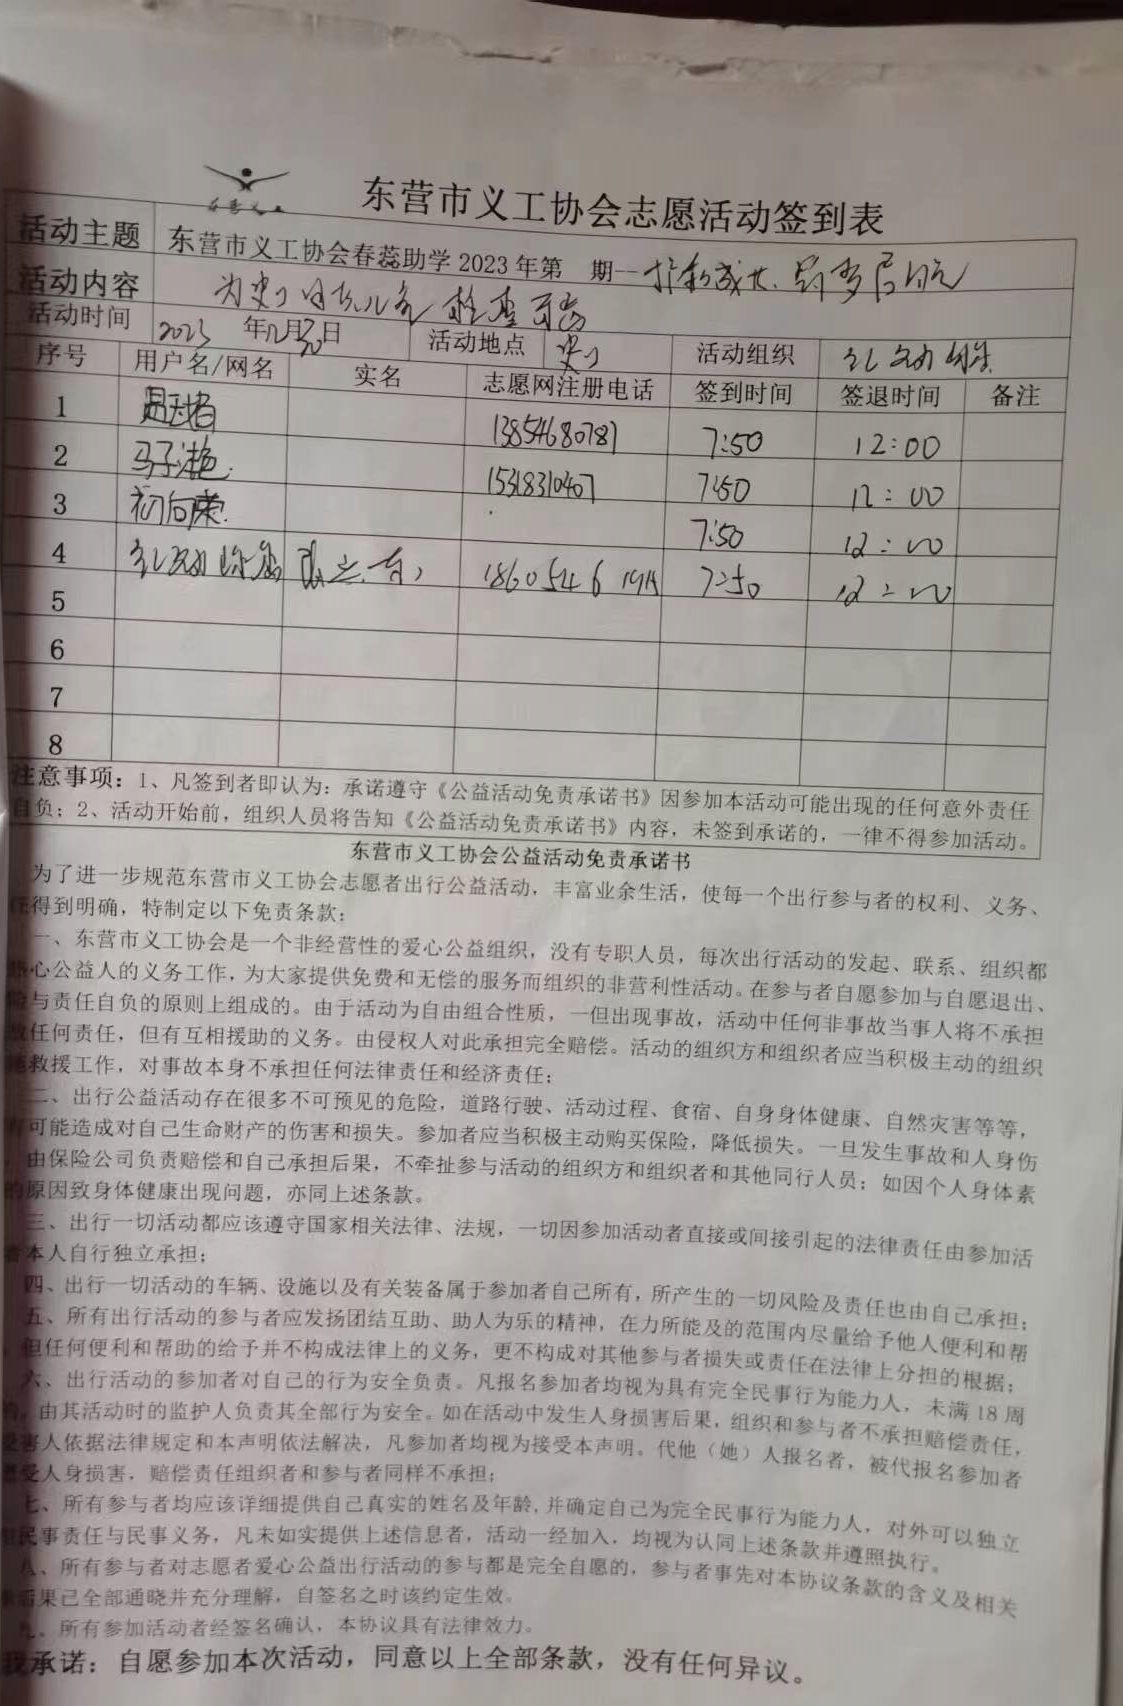 东营义工
东营市义工协会志愿活动签到表
活动主题 东营市义工协会春蕊助学 2023 年第 期--
活动内容
活动时间 2023 年 月 日 活动地点 活动组织
序号 用户名/网名 实名 志愿网注册电话 签到时间 签退时间 备注
1 13854680787 7:50 12:00
2 马子艳 15318310407 7:50 12:00
3 初向荣 7:50 12:00
4 7:50 12:00
5
6
7
8
注意事项：1、凡签到者即认为：承诺遵守《公益活动免责承诺书》因参加本活动可能出现的任何意外责任
自负；2、活动开始前，组织人员将告知《公益活动免责承诺书》内容，未签到承诺的，一律不得参加活动。
东营市义工协会公益活动免责承诺书
为了进一步规范东营市义工协会志愿者出行公益活动，丰富业余生活，使每一个出行参与者的权利、义务、
任得到明确，特制定以下免责条款：
一、东营市义工协会是一个非经营性的爱心公益组织，没有专职人员，每次出行活动的发起、联系、组织都
热心公益人的义务工作，为大家提供免费和无偿的服务而组织的非营利性活动。在参与者自愿参加与自愿退出、
险与责任自负的原则上组成的。由于活动为自由组合性质，一但出现事故，活动中任何非事故当事人将不承担
任何责任，但有互相援助的义务。由侵权人对此承担完全赔偿。活动的组织方和组织者应当积极主动的组织
救援工作，对事故本身不承担任何法律责任和经济责任；
二、出行公益活动存在很多不可预见的危险，道路行驶、活动过程、食宿、自身身体健康、自然灾害等等，
有可能造成对自己生命财产的伤害和损失。参加者应当积极主动购买保险，降低损失。一旦发生事故和人身伤
由保险公司负责赔偿和自己承担后果，不牵扯参与活动的组织方和组织者和其他同行人员；如因个人身体素
的原因致身体健康出现问题，亦同上述条款。
三、出行一切活动都应该遵守国家相关法律、法规，一切因参加活动者直接或间接引起的法律责任由参加活
者本人自行独立承担；
四、出行一切活动的车辆、设施以及有关装备属于参加者自己所有，所产生的一切风险及责任也由自己承担；
五、所有出行活动的参与者应发扬团结互助、助人为乐的精神，在力所能及的范围内尽量给予他人便利和帮
但任何便利和帮助的给予并不构成法律上的义务，更不构成对其他参与者损失或责任在法律上分担的根据；
六、出行活动的参加者对自己的行为安全负责。凡报名参加者均视为具有完全民事行为能力人，未满 18 周
的，由其活动时的监护人负责其全部行为安全。如在活动中发生人身损害后果，组织和参与者不承担赔偿责任，
受害人依据法律规定和本声明依法解决，凡参加者均视为接受本声明。代他（她）人报名者，被代报名参加者
遭受人身损害，赔偿责任组织者和参与者同样不承担；
七、所有参与者均应该详细提供自己真实的姓名及年龄,并确定自己为完全民事行为能力人，对外可以独立
担民事责任与民事义务，凡未如实提供上述信息者，活动一经加入，均视为认同上述条款并遵照执行。
八、所有参与者对志愿者爱心公益出行活动的参与都是完全自愿的，参与者事先对本协议条款的含义及相关
后果已全部通晓并充分理解，自签名之时该约定生效。
九、所有参加活动者经签名确认，本协议具有法律效力。
我承诺：自愿参加本次活动，同意以上全部条款，没有任何异议。